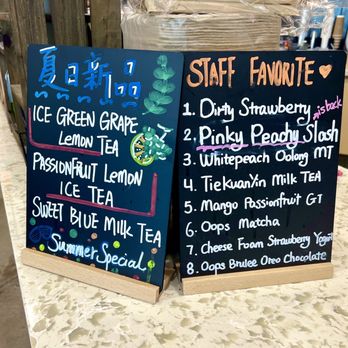 夏日新品
ICE GREEN GRAPE
LEMON TEA
PASSIONFRUIT LEMON
ICE TEA
SWEET BLUE MILK TEA
Summer Special
STAFF FAVORITE
1. Dirty Strawberry is back
2. Pinky Peachy Slash
3. Whitepeach Oolong MT
4. TieKuanYin Milk TEA
5. Mango Passionfruit GT
6. Oops Matcha
7. Cheese Foam Strawberry Yogurt
8. Oops Brulee Oreo Chocolate